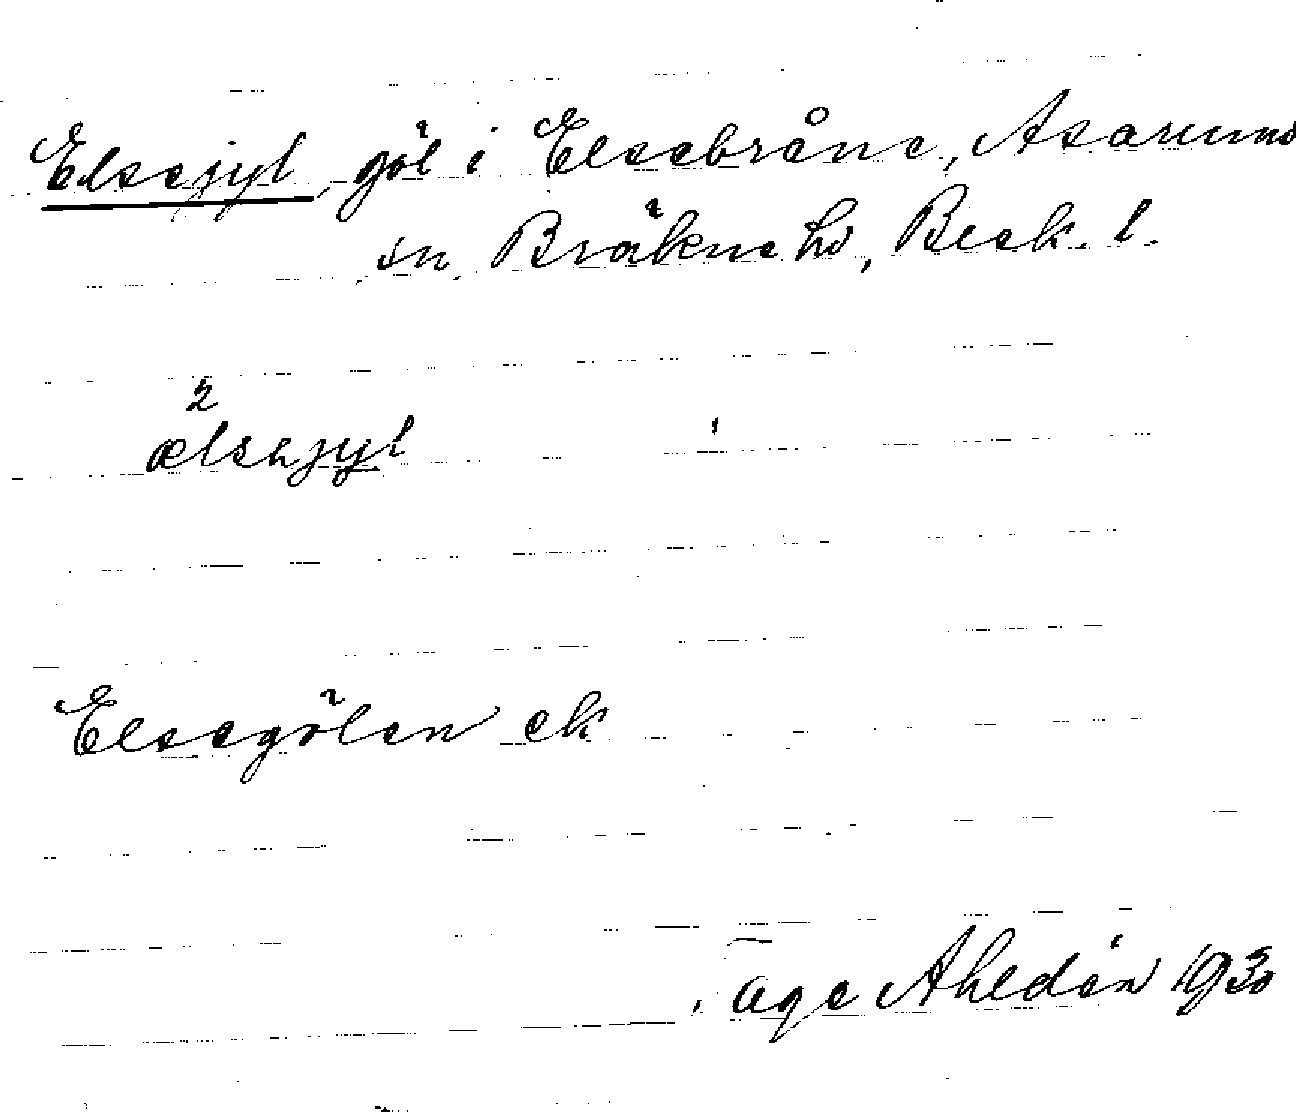 Elsejyl, göl i Elsebråne, Asarums
sn, Bräkne hd, Blek. l.
2
ælsəjyl
Elsegölen ek
Åge Ahldén 1930